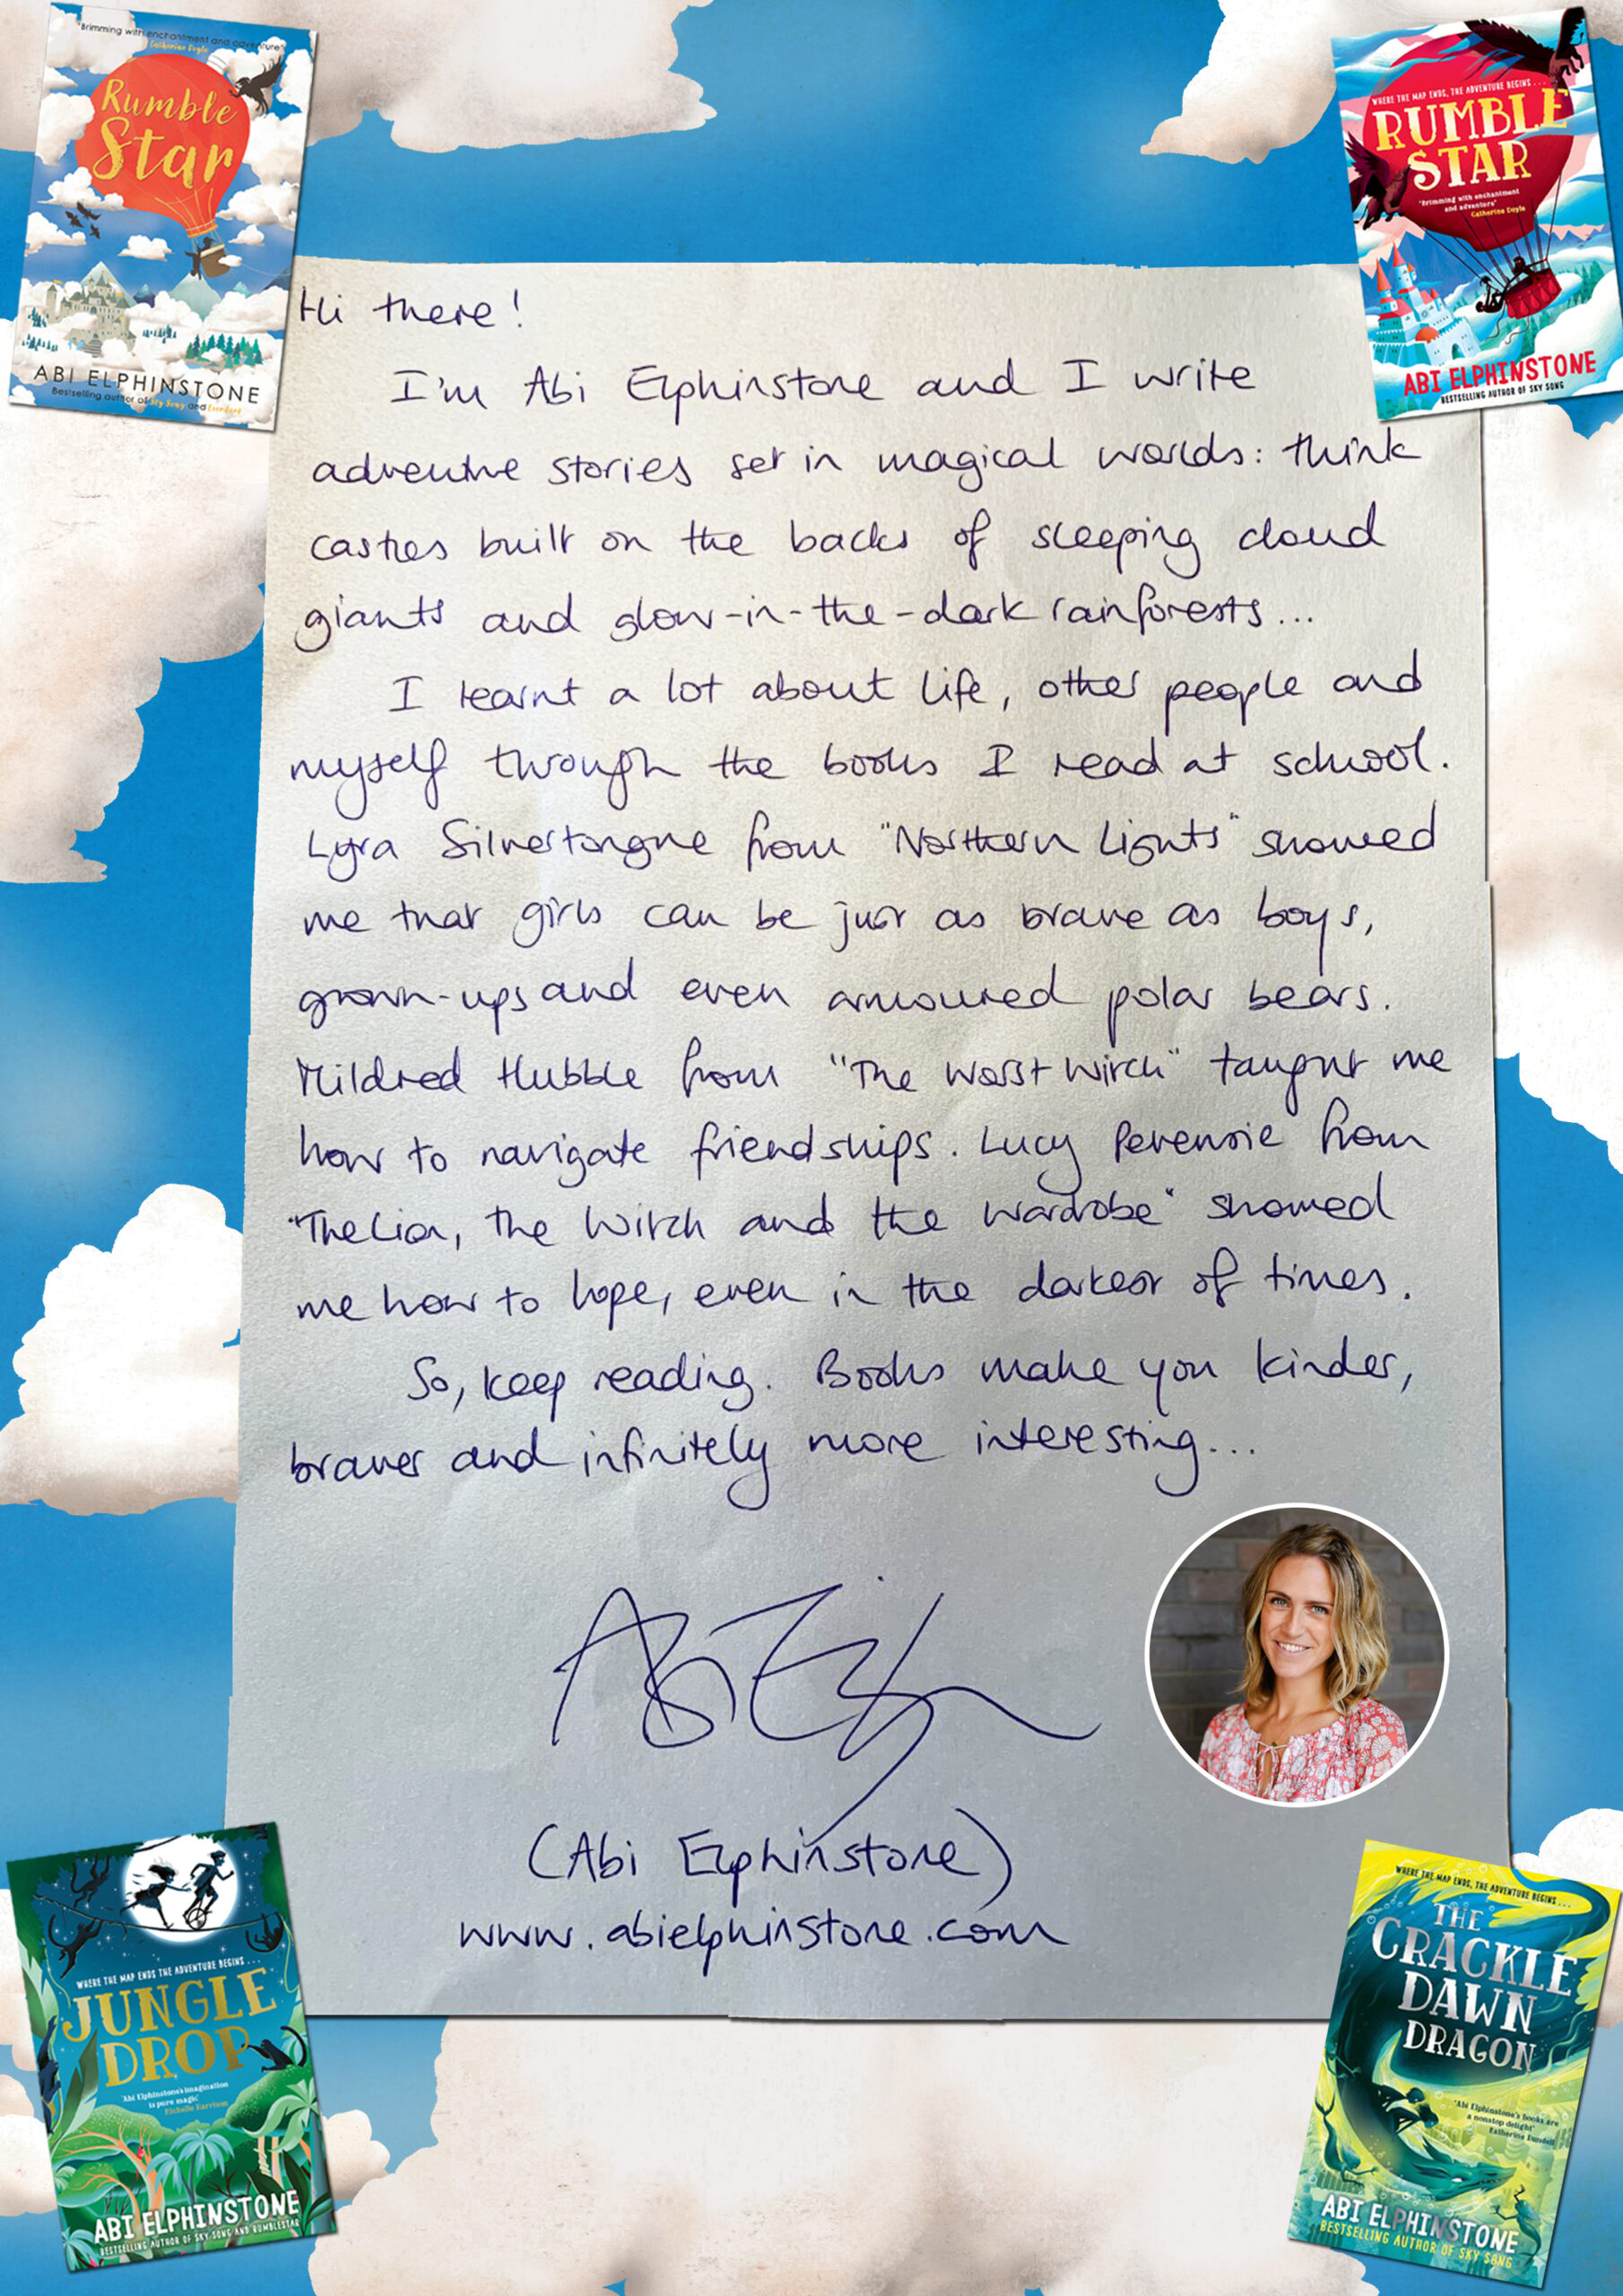 "Brimming with enchantment and adventure"
Catherine Doyle
Rumble
Star
ABI ELPHINSTONE
Bestselling author of Sky Song and Everdark
WHERE THE MAP ENDS, THE ADVENTURE BEGINS . . .
RUMBLE
STAR
'Brimming with enchantment
and adventure'
Catherine Doyle
ABI ELPHINSTONE
BESTSELLING AUTHOR OF SKY SONG
Hi there!
I'm Abi Elphinstone and I write
adventure stories set in magical worlds: think
castles built on the backs of sleeping cloud
giants and glow-in-the-dark rainforests...
I learnt a lot about life, other people and
myself through the books I read at school.
Lyra Silvertongue from "Northern Lights" showed
me that girls can be just as brave as boys,
grown-ups and even armoured polar bears.
Mildred Hubble from "The Worst Witch" taught me
how to navigate friendships. Lucy Pevensie from
"The Lion, the Witch and the Wardrobe" showed
me how to hope, even in the darkest of times.
So, keep reading. Books make you kinder,
braver and infinitely more interesting...
Abi Elph
(Abi Elphinstone)
www.abielphinstone.com
WHERE THE MAP ENDS THE ADVENTURE BEGINS . . .
JUNGLE
DROP
'Abi Elphinstone's imagination
is pure magic'
Michelle Harrison
ABI ELPHINSTONE
BESTSELLING AUTHOR OF SKY SONG AND RUMBLESTAR
WHERE THE MAP ENDS, THE ADVENTURE BEGINS . . .
THE
CRACKLE
DAWN
DRAGON
'Abi Elphinstone's books are
a nonstop delight'
Katherine Rundell
ABI ELPHINSTONE
BESTSELLING AUTHOR OF SKY SONG